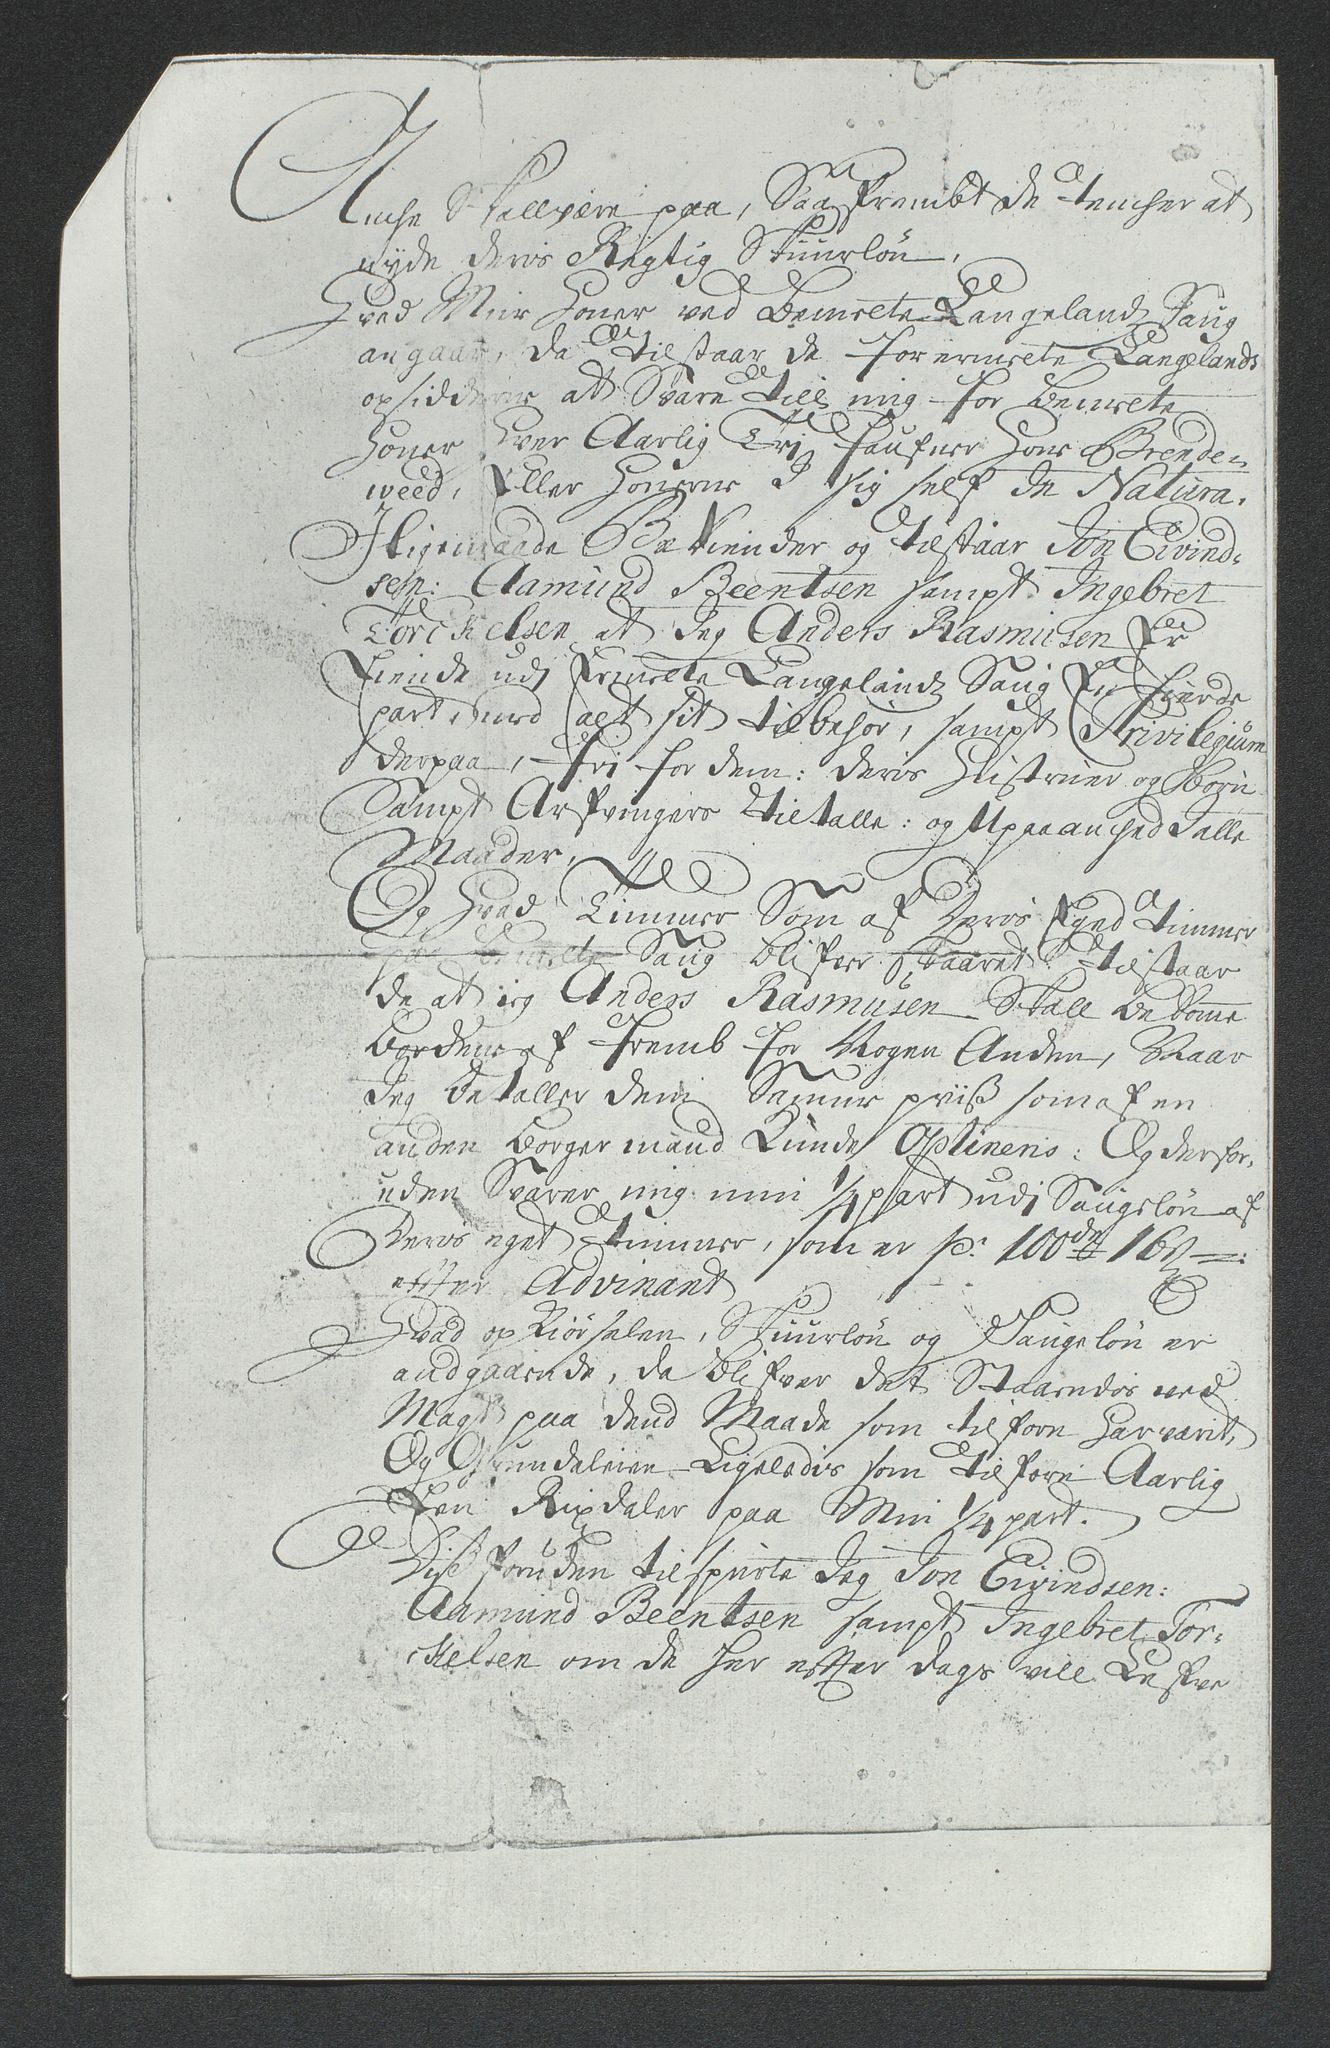 Anche Skall være paa, Saa frembt de tencher at
nyde deris Rigtig Skuurløn.
Hvad Mine Honer ved bemelte Langelandz Saug
angaar, da tilstaar de forermelte Langelands
opsidderne att Svare till mig for bemelte
Honer hver Aarlig Tri faufner Hons Brende-
weed, Eller Honerne I sig self in Natura.
Iligemaade Bekiender og tilstaar Jon Eivind-
sen: Aamund Beentsen sampt Ingebret
Torckelsen at Jeg Anders Rasmusen Er
Eiende udi Ermelte Langelandz Saug En fierde
part, med alt sit tilbehør, sampt Privilegium
derpaa, fri for dem: deris Hustruer og Børn
Sampt Arfvingers tiltalle: og Upaaanched I alle
Maader.
Og hvad Timmer Som af Deris Eget timmer
paa bemelte Saug blifver Skaaret tilstaar
de at ieg Anders Rasmusen Skall bekomme
bordene af fremb for Nogen Anden, Naar
Jeg betaller dem Samme priiß som af en
anden borgermand Kunde Optineris: Og derfor-
uden Svarer mig min 1/4 part udi Saugsløn af
Deris eget timmer, som er pr. 100de 16 ß
effter Advinant
Hvad opkiørselen, Skuurløn og Saugeløn er
andgaaende, da blifver det Staaendis ved
Magt paa dend Maade som tilforn har værit,
Og Grundeleien Ligeledis som tilforn Aarlig
Een Rixdaler paa Min 1/4 part.
Diß foruden tilspurte Jeg Jon Eivindsen:
Aamund Beentsen sampt Ingebret Tor-
ckelsen om de her effter dags vill Lefve